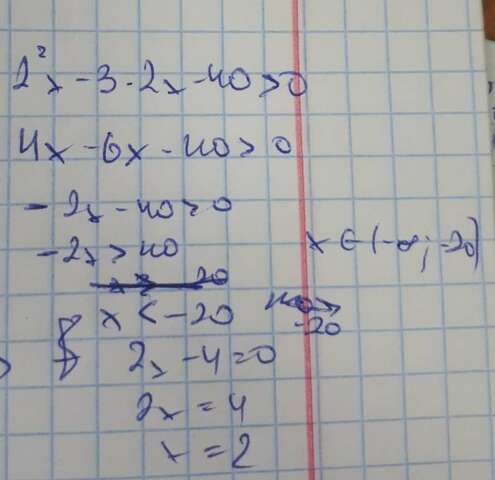 2²x - 3 · 2x - 40 > 0
4x - 6x - 40 > 0
- 2x - 40 > 0
- 2x > 40
x ∈ (-∞; -20)
x < -20
-20
2x - 4 = 0
2x = 4
x = 2